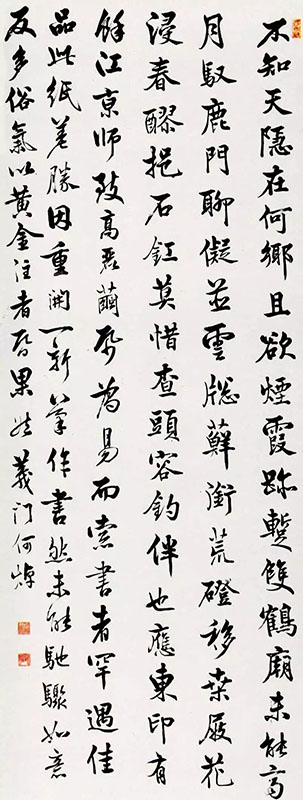 不知天隱在何鄉且欲煙霞跡蹔雙鶴廟未能齊
月馭鹿門聊儗並雲牎蘚銜荒磴移桒屐花
浸春醪挹石缸莫惜查頭容釣伴也應東印有
餘江京師致高麗繭帋為易而索書者罕遇佳
品此紙差勝因重開一新筆作書然未能馳驟如意
反多俗氣以黃金注者昬果然義门何焯